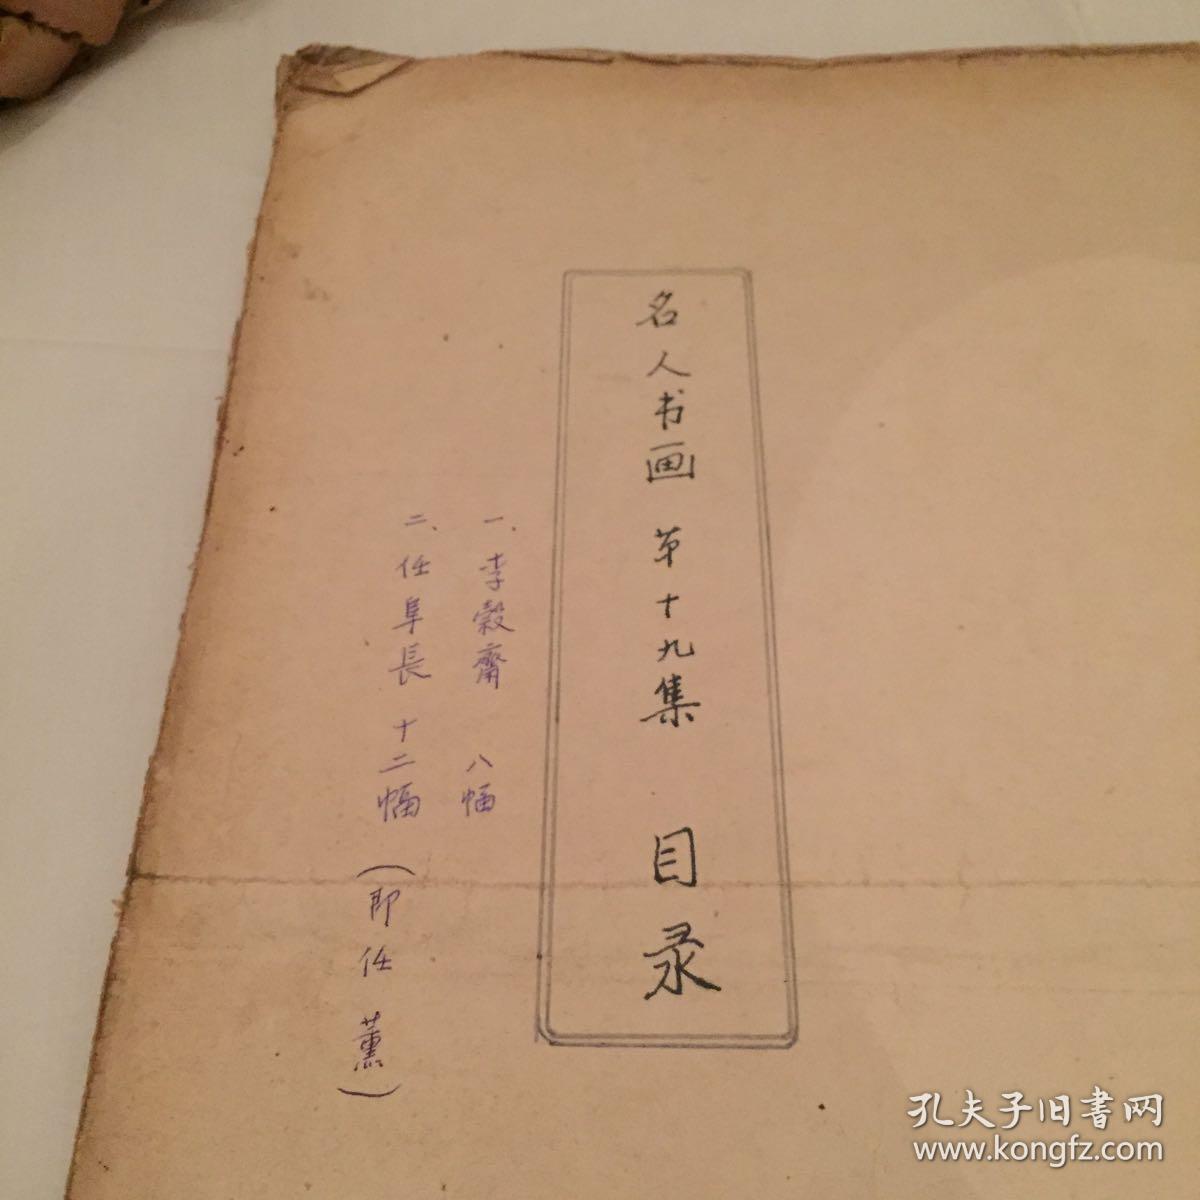 名人书画 第十九集 目录
一、李穀齋 八幅
二、任阜長 十二幅 (即任薰)
孔夫子旧書网
www.kongfz.com